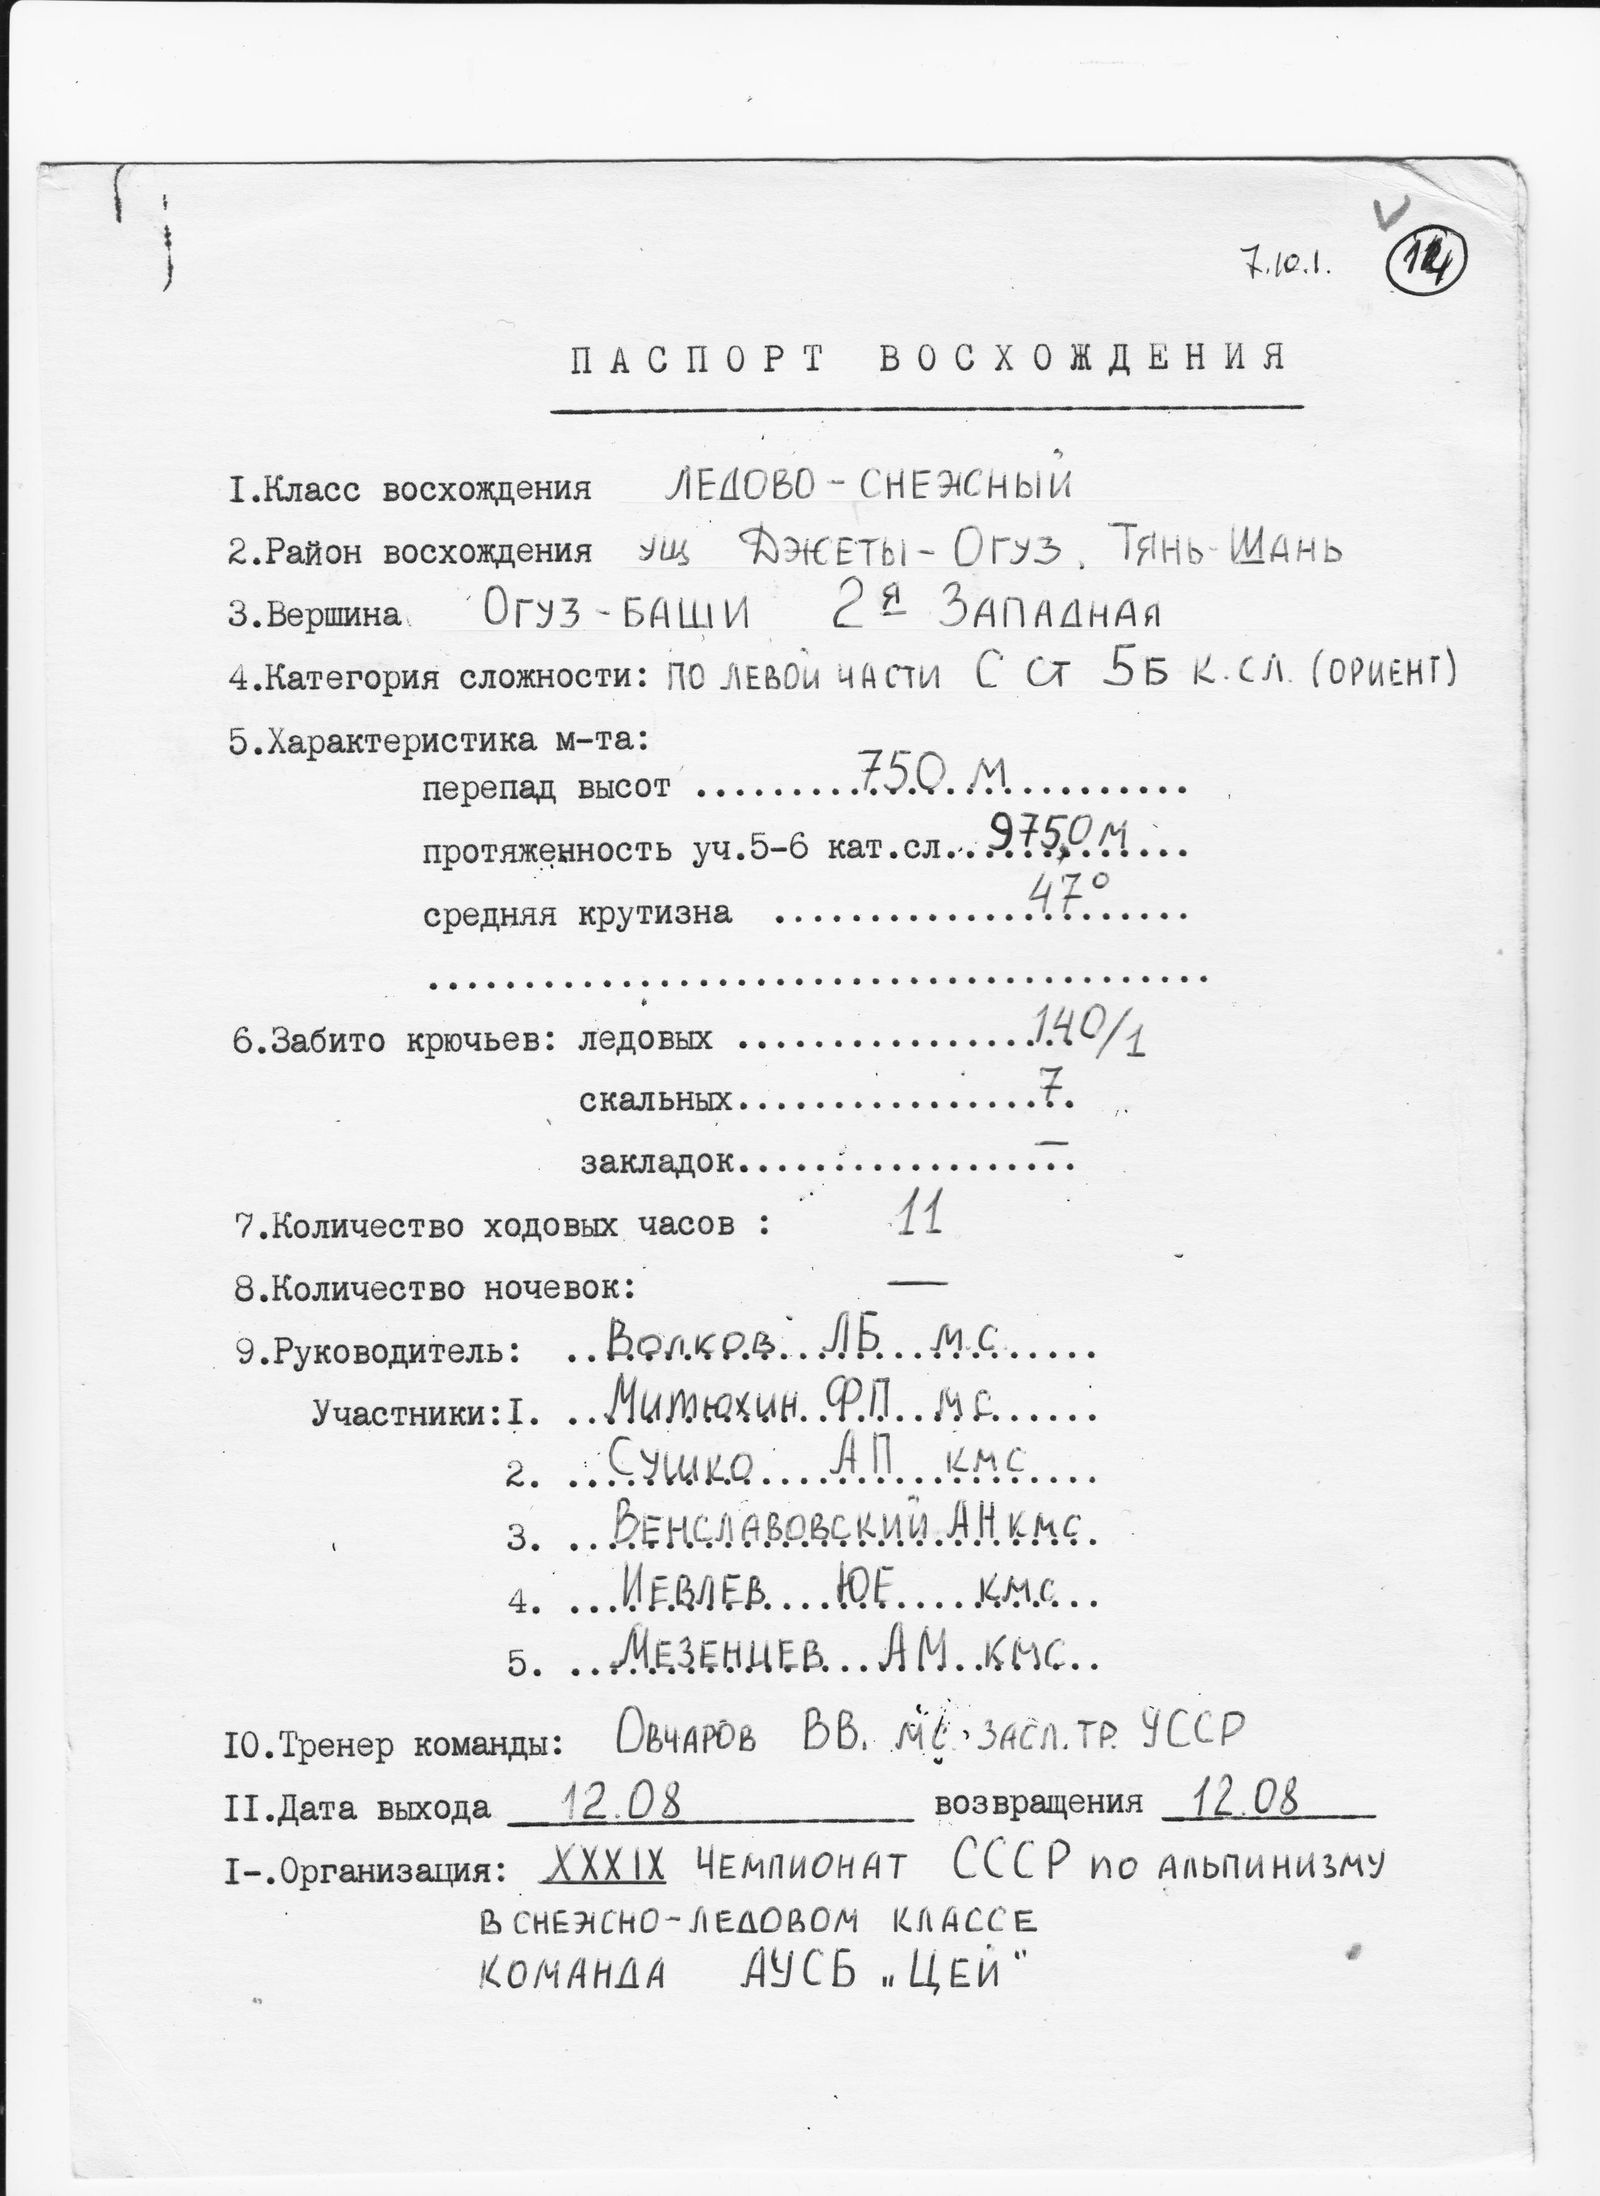 7.10.1.
ПАСПОРТ ВОСХОЖДЕНИЯ
I.Класс восхождения ЛЕДОВО-СНЕЖНЫЙ
2.Район восхождения УЩ ДЖЕТЫ-ОГУЗ, ТЯНЬ-ШАНЬ
3.Вершина ОГУЗ-БАШИ 2Я ЗАПАДНАЯ
4.Категория сложности: ПО ЛЕВОЙ ЧАСТИ С СТ 5Б К.СЛ. (ОРИЕНТ)
5.Характеристика м-та:
перепад высот ......... 750 М ..........
протяженность уч.5-6 кат.сл... 975,0 М ...
средняя крутизна ............ 47° ......
.........................................
6.Забито крючьев: ледовых ................ 140/1
скальных................ 7
закладок.................. —
7.Количество ходовых часов : 11
8.Количество ночевок: —
9.Руководитель: ..Волков ЛБ МС.....
Участники:I. ..Митюхин ФП МС.....
2. ..Сушко АП КМС....
3. ..ВЕНСЛАВОВСКИЙ АН КМС.
4. ...ИЕВЛЕВ ЮЕ КМС..
5. ..МЕЗЕНЦЕВ АМ КМС..
10.Тренер команды: ОВЧАРОВ ВВ. МС, ЗАСЛ.ТР. УССР
II.Дата выхода 12.08 возвращения 12.08
I-.Организация: XXXIX ЧЕМПИОНАТ СССР ПО АЛЬПИНИЗМУ
В СНЕЖНО-ЛЕДОВОМ КЛАССЕ
КОМАНДА АУСБ „ЦЕЙ"